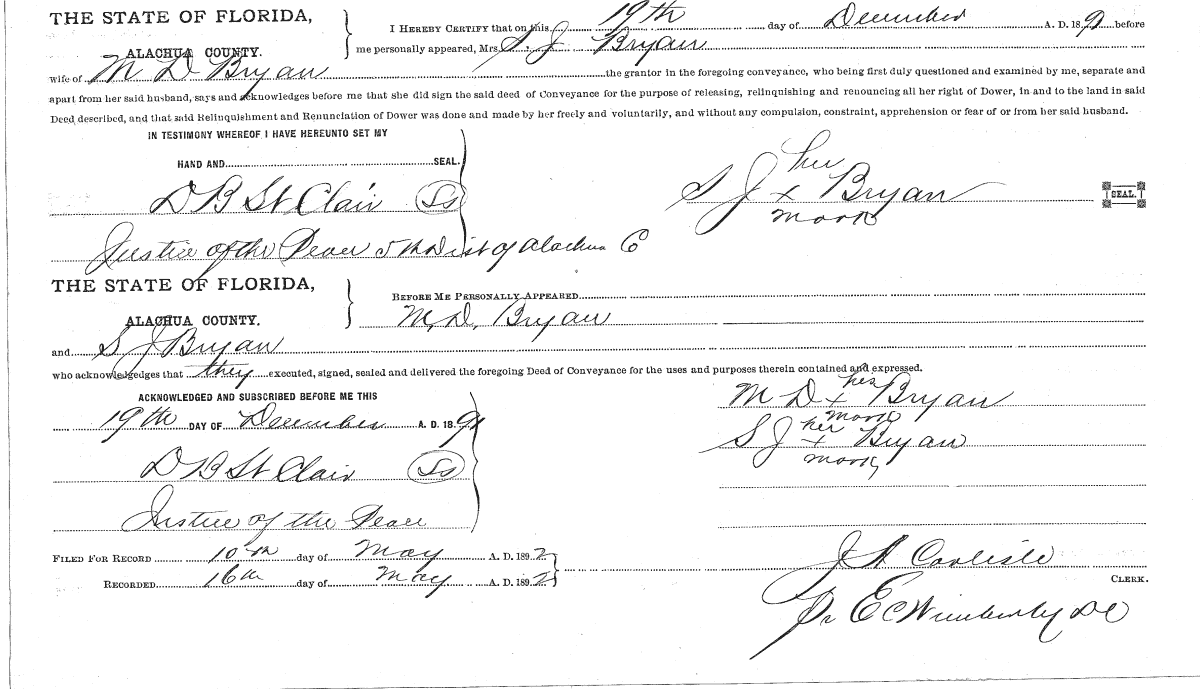 THE STATE OF FLORIDA,
ALACHUA COUNTY.
I HEREBY CERTIFY that on this 19th day of December A. D. 1891 before
me personally appeared, Mrs. S. J. Bryan
wife of M D Bryan the grantor in the foregoing conveyance, who being first duly questioned and examined by me, separate and
apart from her said husband, says and acknowledges before me that she did sign the said deed of Conveyance for the purpose of releasing, relinquishing and renouncing all her right of Dower, in and to the land in said
Deed described, and that said Relinquishment and Renunciation of Dower was done and made by her freely and voluntarily, and without any compulsion, constraint, apprehension or fear of or from her said husband.
IN TESTIMONY WHEREOF I HAVE HEREUNTO SET MY
HAND AND SEAL.
D B St Clair Ss
her
S J x Bryan SEAL.
mark
Justice of the Peace 5th Dist of Alachua C
THE STATE OF FLORIDA,
ALACHUA COUNTY.
BEFORE ME PERSONALLY APPEARED
M, D, Bryan
and S J Bryan
who acknowledges that they executed, signed, sealed and delivered the foregoing Deed of Conveyance for the uses and purposes therein contained and expressed.
ACKNOWLEDGED AND SUBSCRIBED BEFORE ME THIS
19th DAY OF December A. D. 1891
D B St Clair Ss
Justice of the Peace
his
M D x Bryan
mark
her
S J x Bryan
mark
FILED FOR RECORD 10th day of May A. D. 1892
RECORDED 16th day of May A. D. 1892
J A Carlisle
CLERK.
Pr E C Wimberly DC